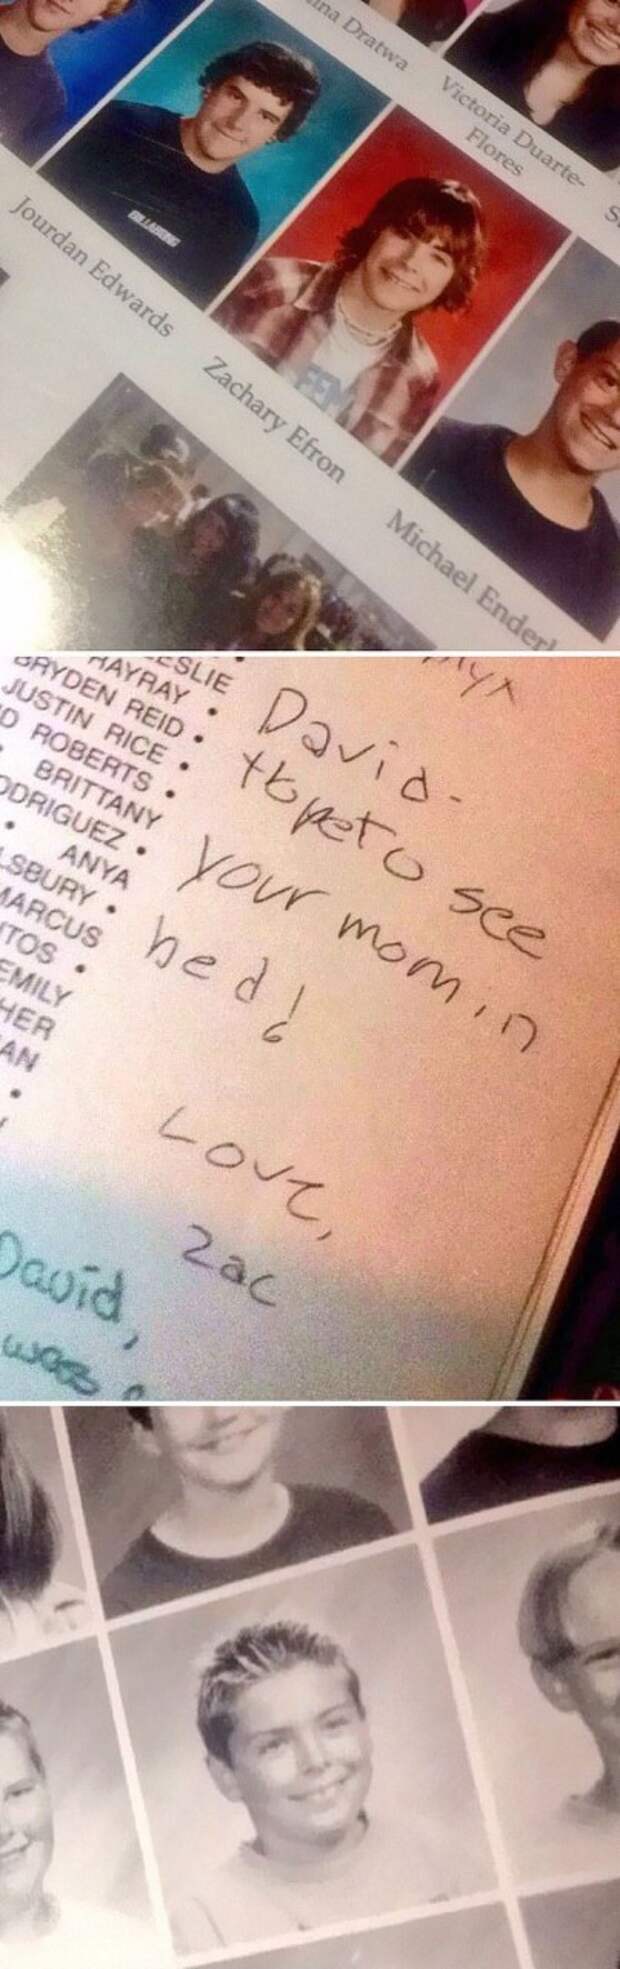 nna Dratwa
Victoria Duarte-
Flores
S
BILLABONG
Jourdan Edwards
Zachary Efron
Michael Enderl
LESLIE •
RAYRAY •
BRYDEN REID •
JUSTIN RICE •
D ROBERTS •
BRITTANY
ODRIGUEZ •
• ANYA
LSBURY •
MARCUS
TOS •
EMILY
HER
AN
David-
Hope to see
your mom in
bed!
Love,
Zac
David,
was